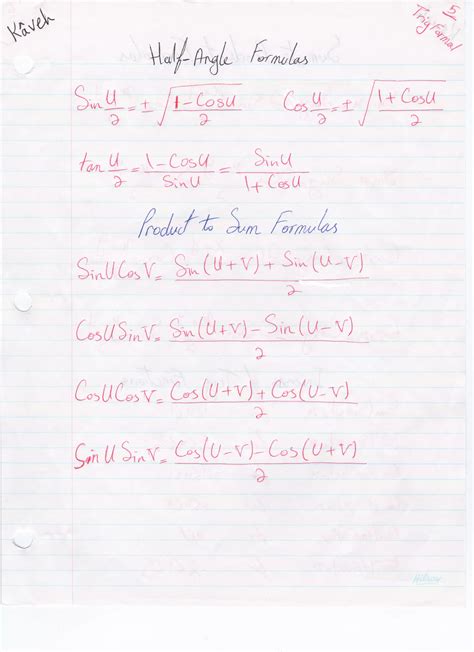 Kâveh
5
Trig Formal
Half-Angle Formulas
Sin U/2 = ± √((1-CosU)/2)    Cos U/2 = ± √((1+CosU)/2)
tan U/2 = (1-CosU)/SinU = SinU/(1+CosU)
Product to Sum Formulas
SinU CosV = (Sin(U+V)+Sin(U-V))/2
CosU SinV = (Sin(U+V)-Sin(U-V))/2
CosU CosV = (Cos(U+V)+Cos(U-V))/2
SinU SinV = (Cos(U-V)-Cos(U+V))/2
Hilroy